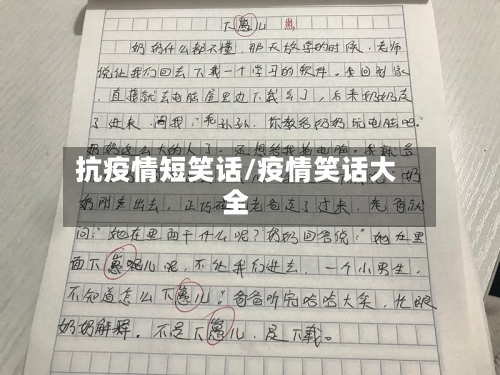 下崽儿 崽
奶奶什么都不懂，那天放学的时候，老师
说让我们回去下载一个学习的软件。我回到家
，直接就去电脑屋里边下载去了，后来奶奶走
了进来，问我："乖孙子，你教奶奶玩电脑吧。"
奶奶这么大的人了，还想
抗疫情短笑话/疫情笑话大
全
奶奶刚走出去，正巧爸爸走了过来，
问："她在里面干什么呢？"奶奶回答说："她在里
面下崽儿呢，不让我们进去，一个小男生，
不知道怎么下崽儿。"爸爸听完哈哈大笑，忙跟
奶奶解释，不是下崽儿，是下载。